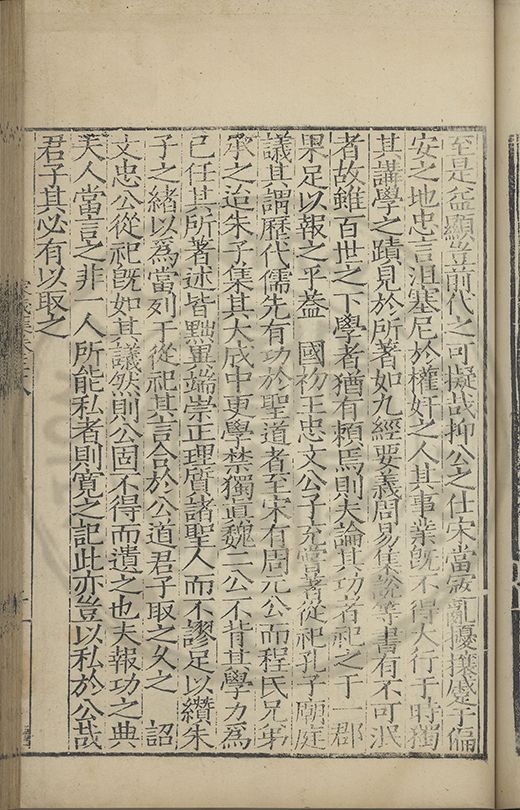 至是益顯豈前代之可擬哉抑公之仕宋當寇亂優攘蹙于偏
安之地忠言沮塞尼於權奸之人其事業旣不得大行于時獨
其講學之蹟見於所著如九經要義周易集說等書有不可泯
者故雖百世之下學者猶有賴焉則夫論其功者祀之于一郡
果足以報之乎葢 國初王忠文公子充嘗著從祀孔子廟庭
議其謂歷代儒先有功於聖道者至宋有周元公而程氏兄弟
承之迨朱子集其大成中更學禁獨眞魏二公不背其學力爲
己任其所著述皆黜異端崇正理質諸聖人而不謬足以纘朱
子之緒以爲當列于從祀其言合於公道君子取之久之 詔
文忠公從祀旣如其議然則公固不得而遺之也夫報功之典
夫人當言之非一人所能私者則寬之記此亦豈以私於公哉
君子其必有以取之